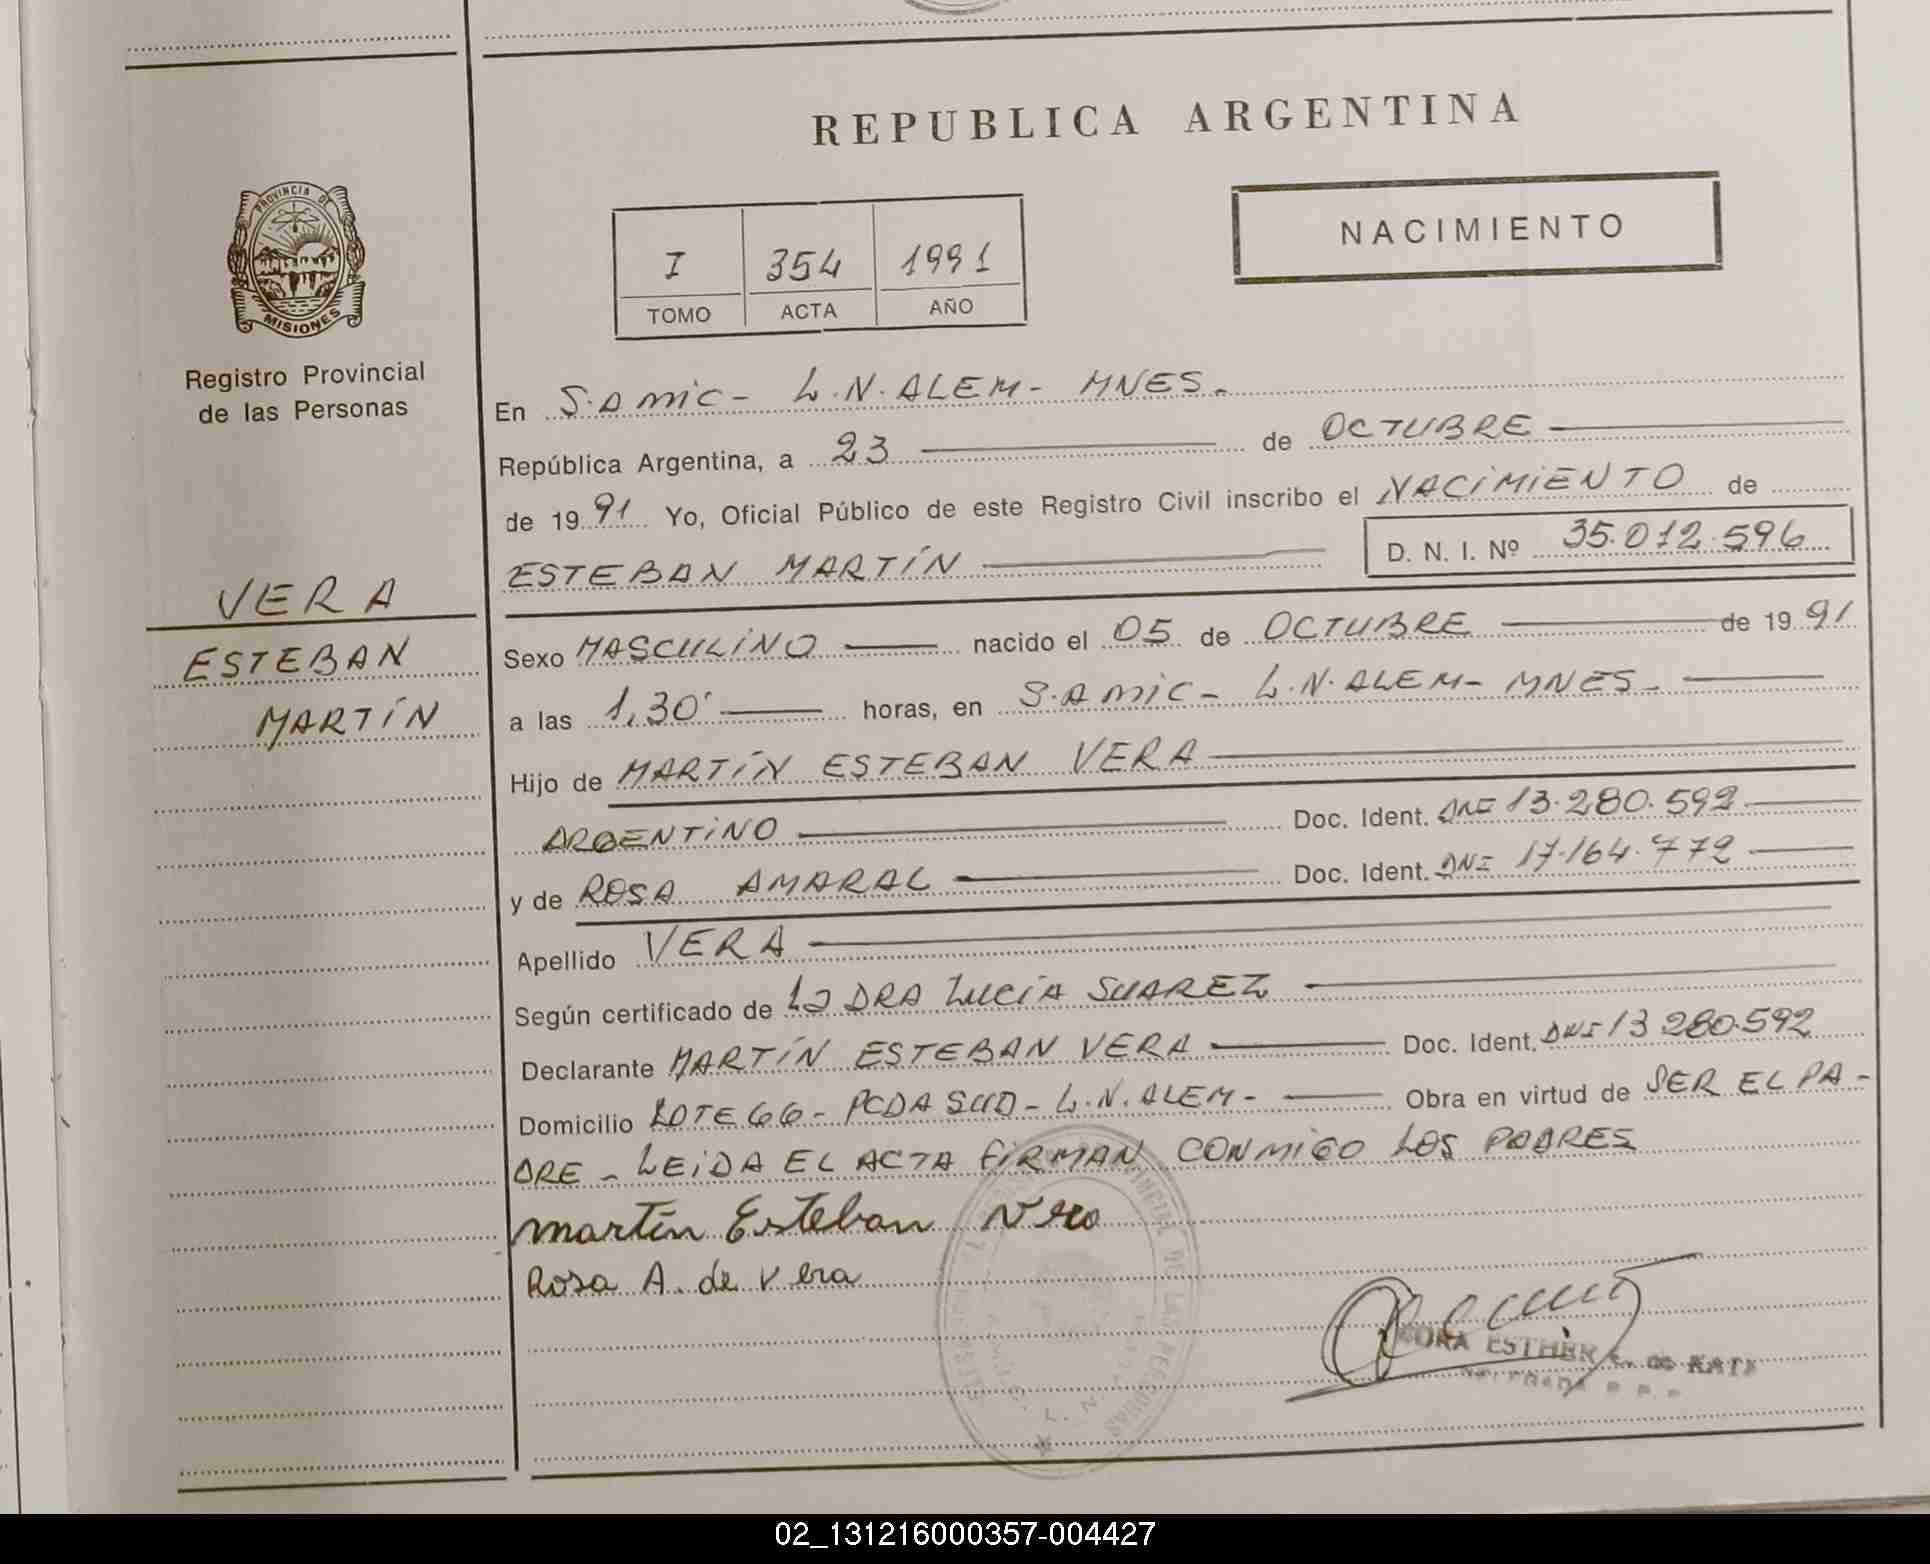 REPUBLICA ARGENTINA
PROVINCIA DE
MISIONES
Registro Provincial
de las Personas
VERA
ESTEBAN
MARTÍN
NACIMIENTO
I 354 1991
TOMO ACTA AÑO
En S.AMIC - L.N.ALEM - MNES.
República Argentina, a 23 de OCTUBRE
de 1991 Yo, Oficial Público de este Registro Civil inscribo el NACIMIENTO de
ESTEBAN MARTÍN D. N. I. Nº 35.012.596
Sexo MASCULINO nacido el 05 de OCTUBRE de 1991
a las 1,30' horas, en S.AMIC - L.N.ALEM - MNES.
Hijo de MARTÍN ESTEBAN VERA
ARGENTINO Doc. Ident. DNI 13.280.592
y de ROSA AMARAL Doc. Ident. DNI 17.164.772
Apellido VERA
Según certificado de LA DRA LUCÍA SUAREZ
Declarante MARTÍN ESTEBAN VERA Doc. Ident. DNI 13 280.592
Domicilio LOTE 66 - PCDA SUD - L.N.ALEM - Obra en virtud de SER EL PA-
DRE - LEIDA EL ACTA FIRMAN CONMIGO LOS PADRES
martín Esteban Vera
Rosa A. de Vera
ESTHER
02_131216000357-004427